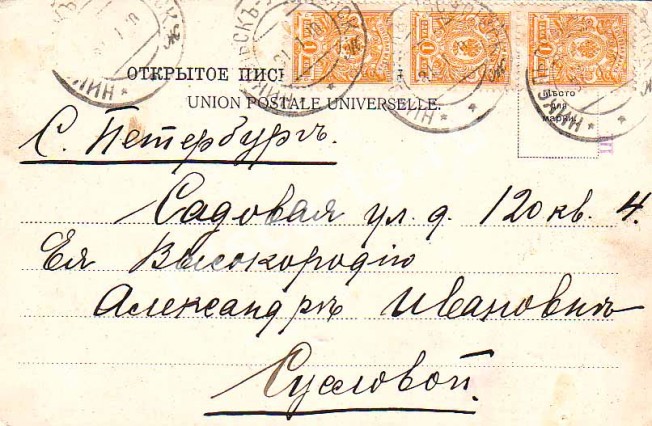 ОТКРЫТОЕ ПИСЬ
UNION POSTALE UNIVERSELLE.
Мѣсто
для
марки.
С. Петербургъ.
Садовая ул. д. 120 кв. 4.
Ея Высокородію
Александрѣ Ивановнѣ
Сусловой.